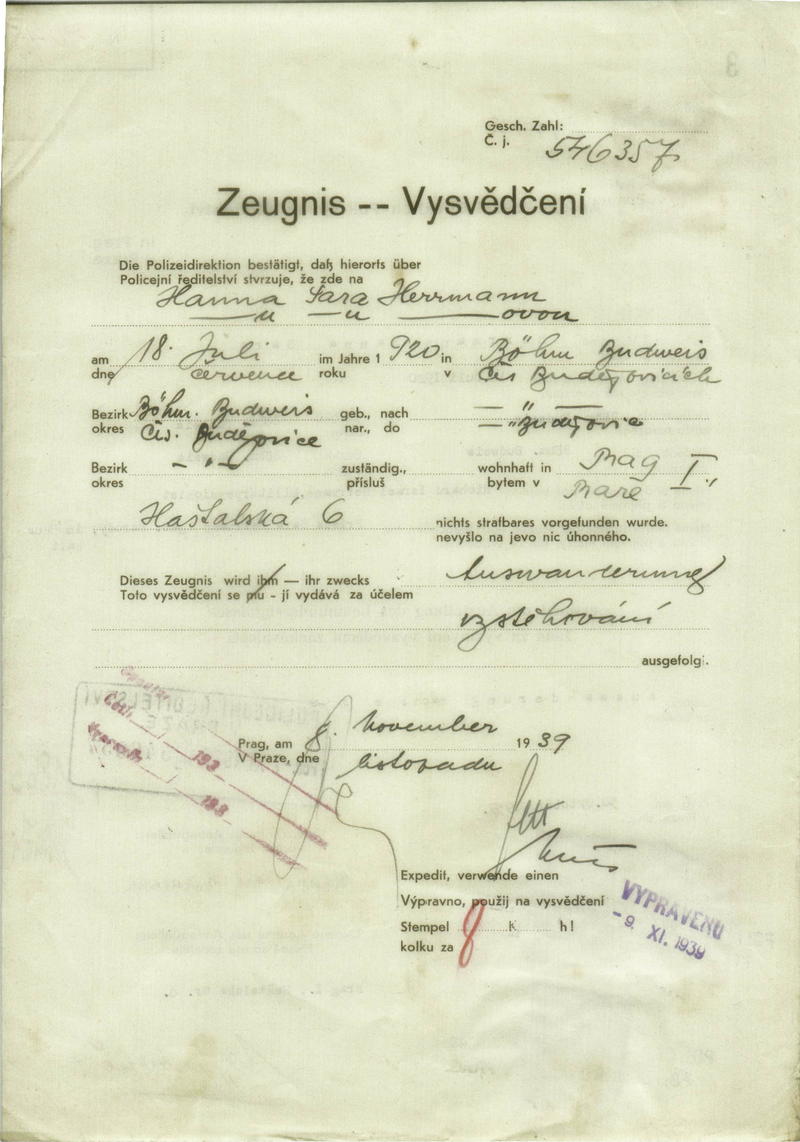 Gesch. Zahl:
Č. j. 546357
Zeugnis -- Vysvědčení
Die Polizeidirektion bestätigt, daß hierorts über
Policejní ředitelství stvrzuje, že zde na
Hanna Sara Herrmann
—u —u —ovou
am 18. Juli im Jahre 1 920 in Böhm Budweis
dne července roku v Čes Budějovicích
Bezirk Böhm. Budweis geb., nach — " —
okres Čes. Budějovice nar., do — " Budějovic
Bezirk — " — zuständig., wohnhaft in Prag I.,
okres přísluš bytem v Praze
Haštalská 6 nichts strafbares vorgefunden wurde.
nevyšlo na jevo nic úhonného.
Dieses Zeugnis wird ihm — ihr zwecks Auswanderung
Toto vysvědčení se mu - jí vydává za účelem
vystěhování
ausgefolgt.
Prag, am 8. November 19 39
V Praze, dne listopadu
Expedit, verwende einen
Výpravno, použij na vysvědčení
Stempel 8 K h!
kolku za
VYPRAVENO
- 9. XI. 1939
193
193